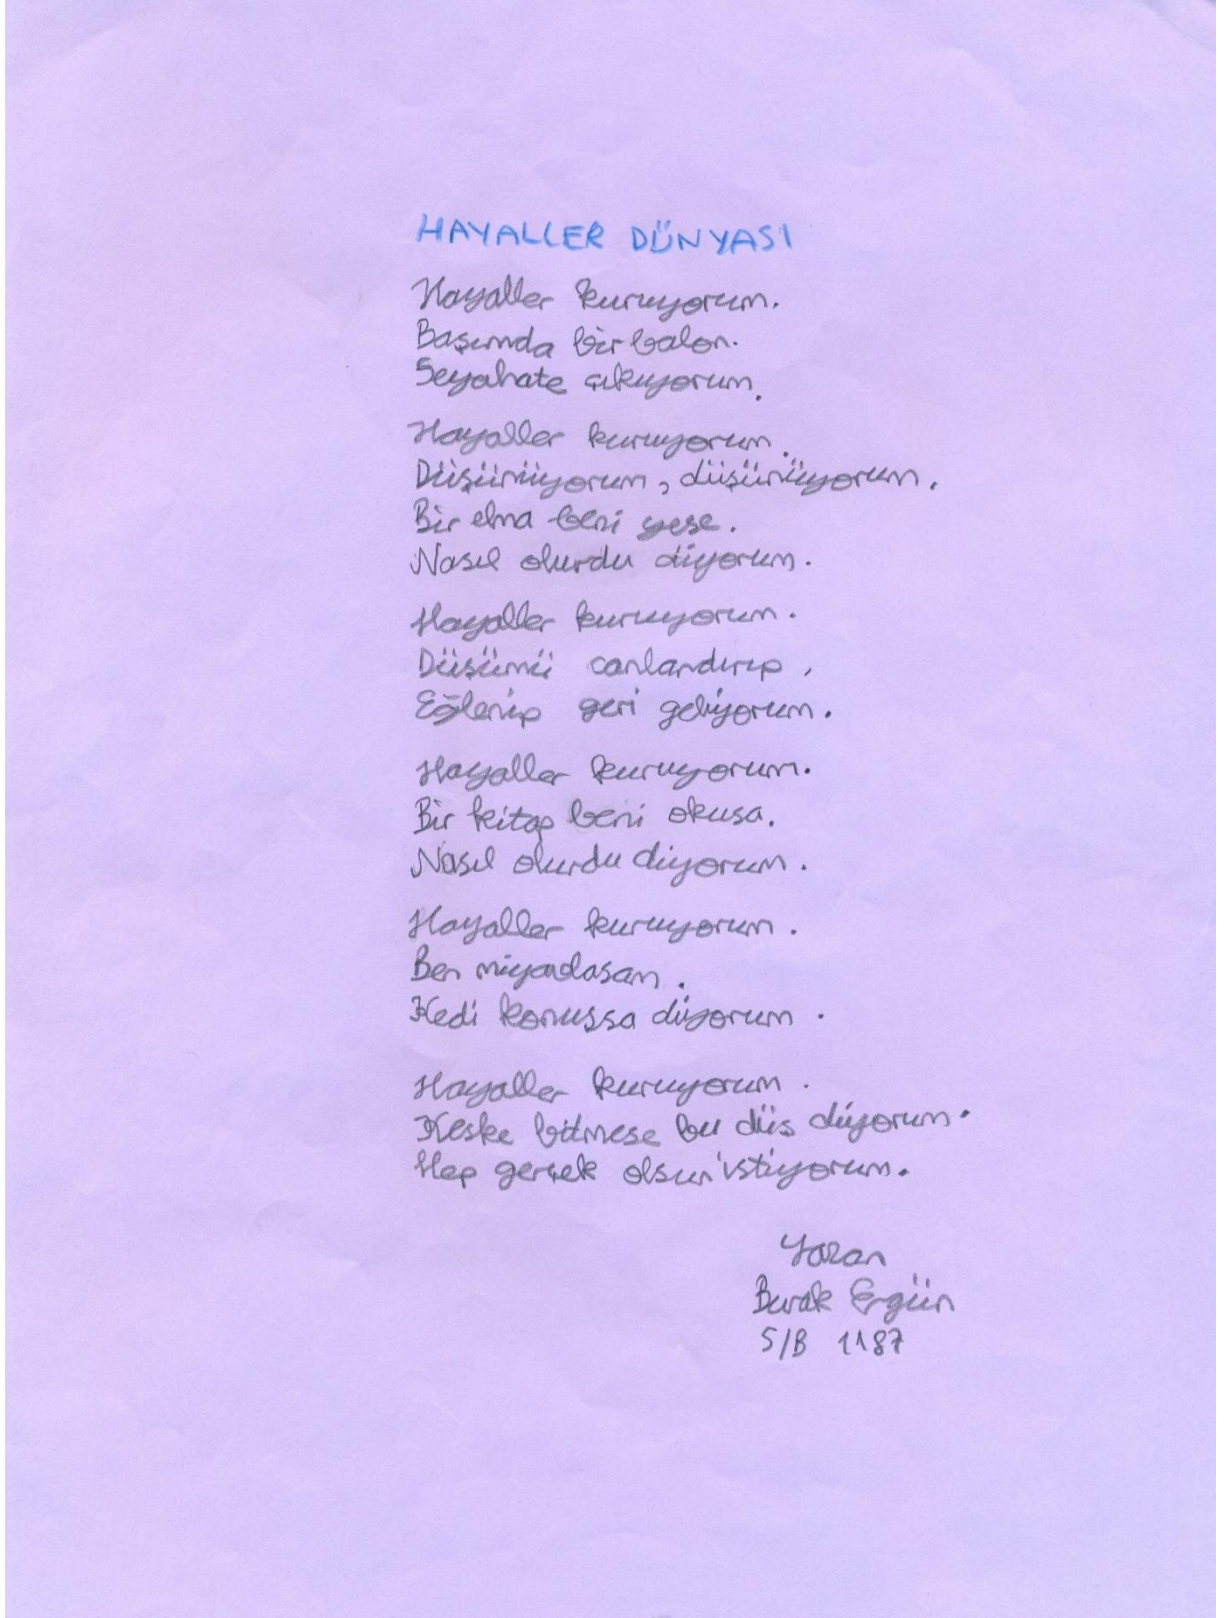 HAYALLER DÜNYASI
Hayaller kuruyorum.
Başımda bir balon.
Seyahate çıkıyorum.
Hayaller kuruyorum.
Düşünüyorum, düşünüyorum.
Bir elma beni yese.
Nasıl olurdu diyorum.
Hayaller kuruyorum.
Düşümü canlandırıp,
Eğlenip geri geliyorum.
Hayaller kuruyorum.
Bir kitap beni okusa.
Nasıl olurdu diyorum.
Hayaller kuruyorum.
Ben miyavlasam.
Kedi konuşsa diyorum.
Hayaller kuruyorum.
Keşke bitmese bu düş diyorum.
Hep gerçek olsun istiyorum.
Yazan
Burak Ergün
5/B 1187